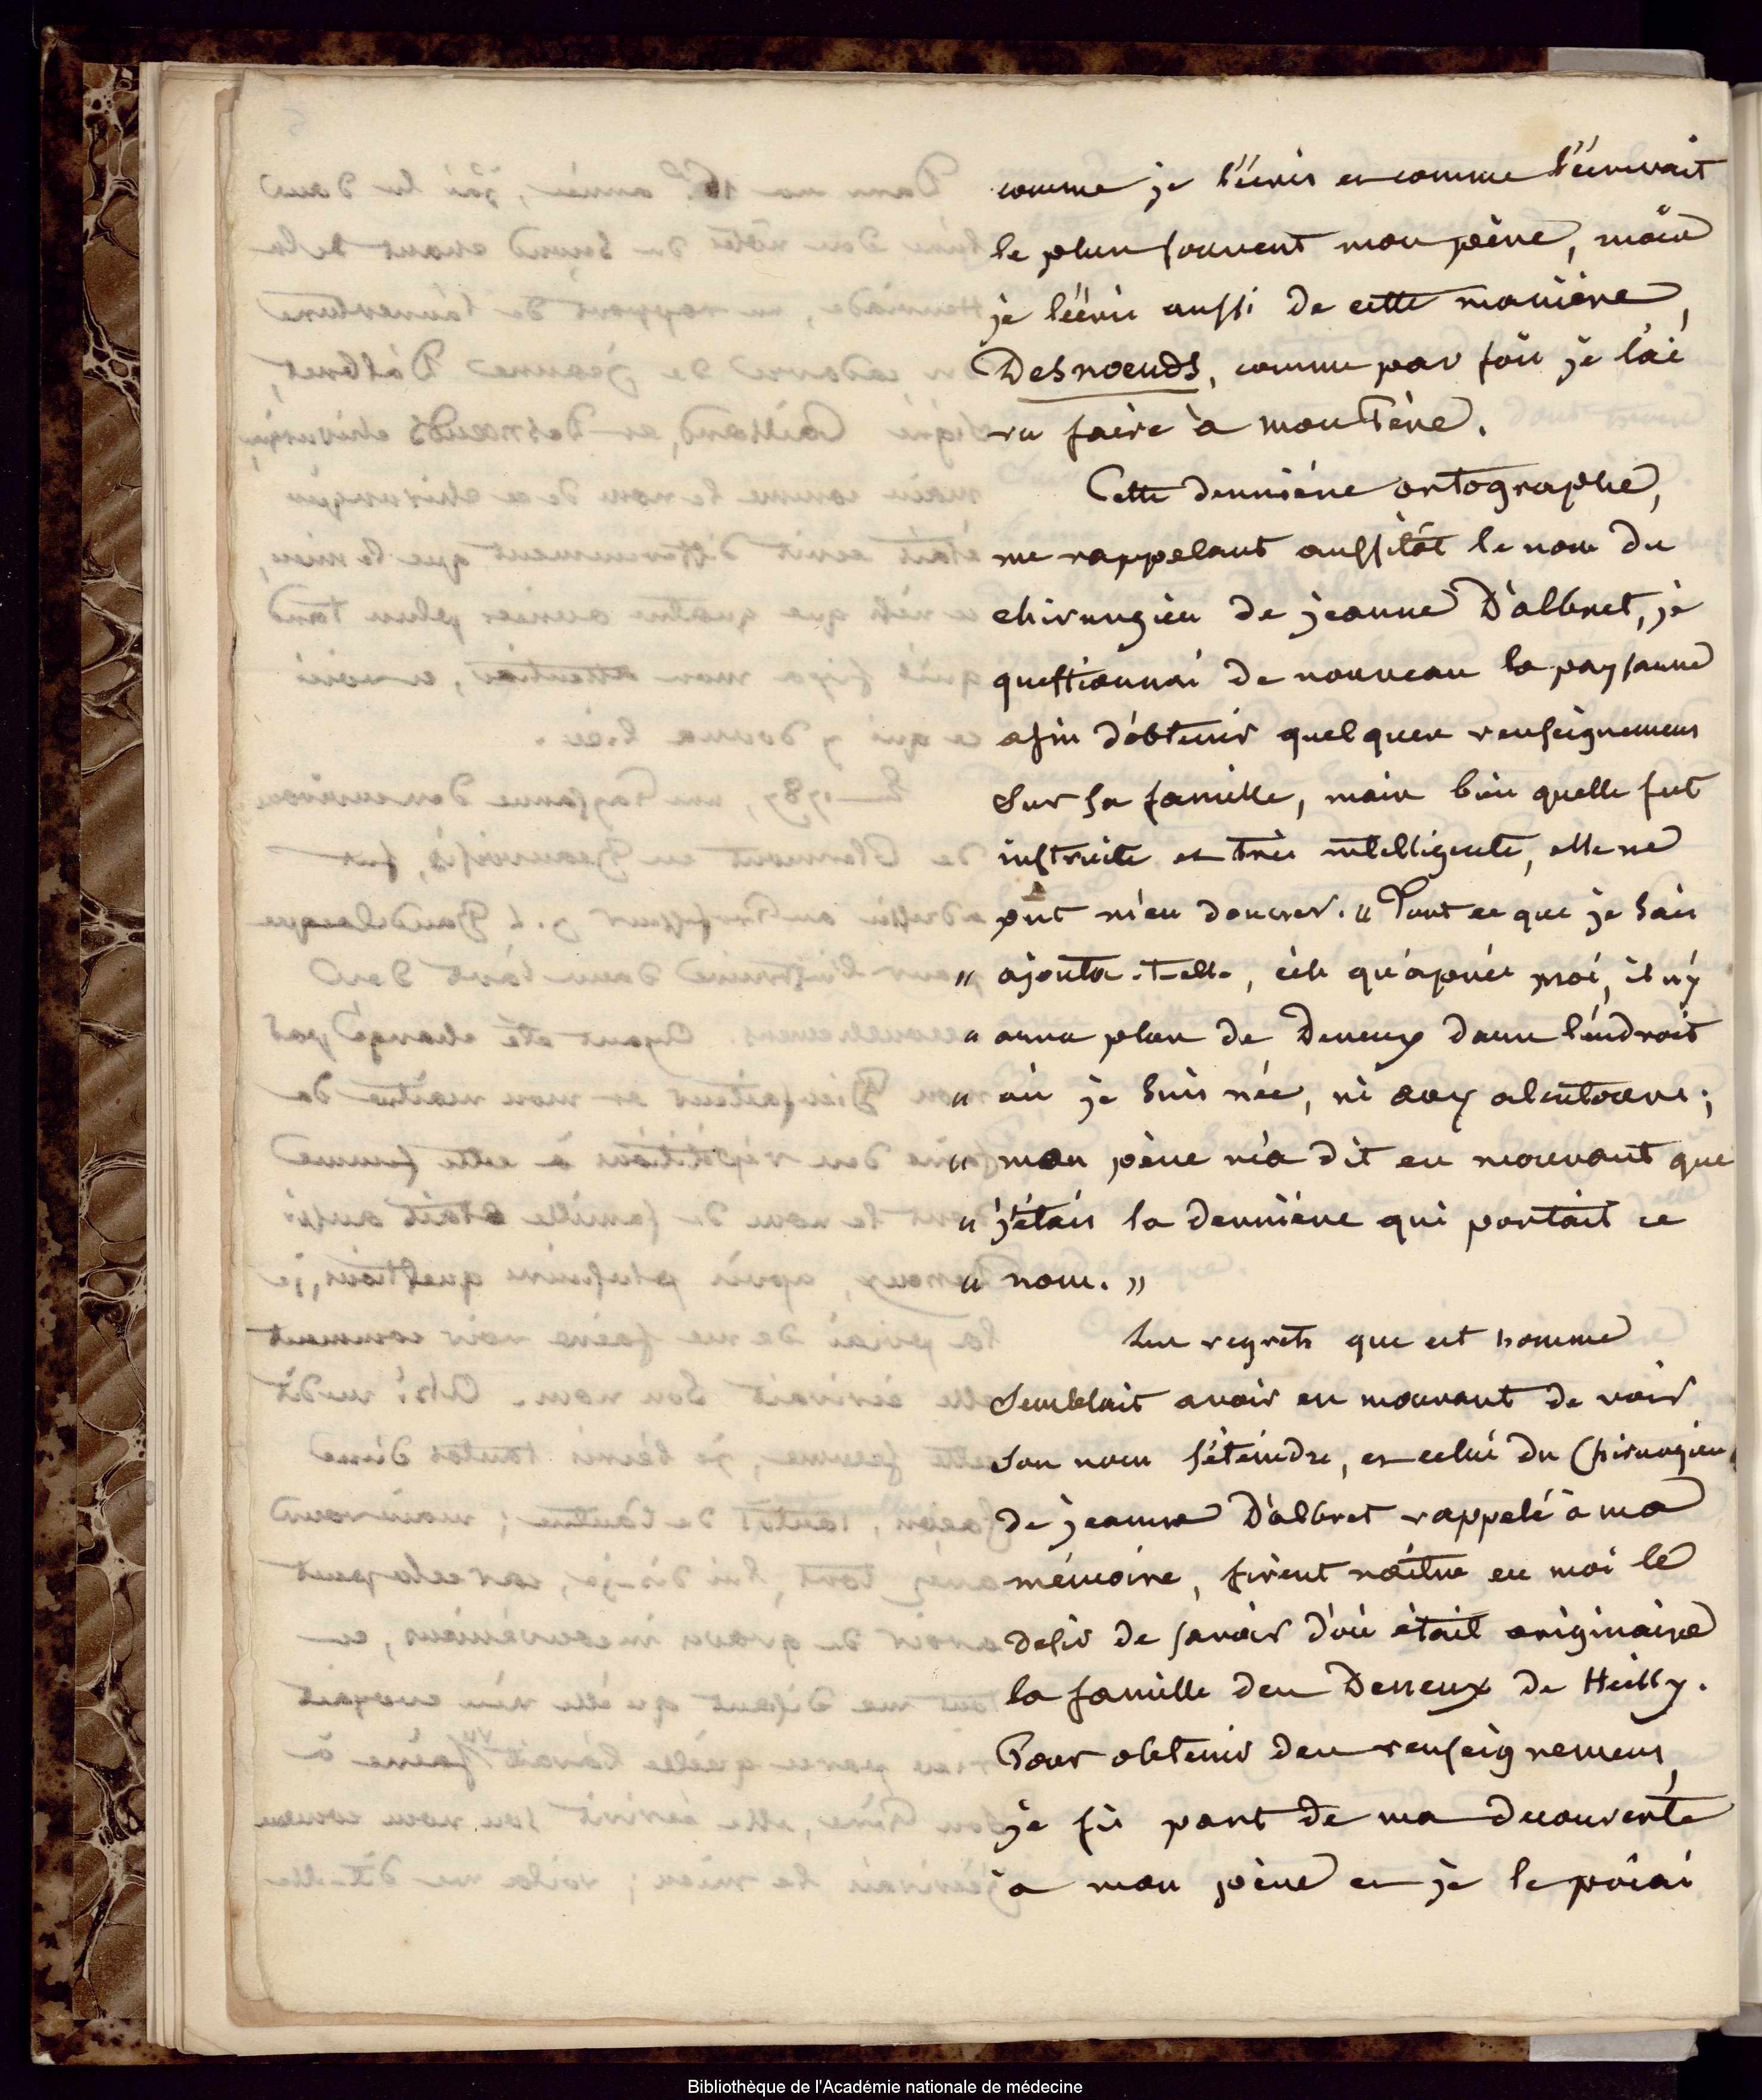 comme je l'écris et comme l'écrivait
le plus souvent mon père, mais
je l'écris aussi de cette manière,
Desnoeuds, comme par fois je l'ai
vu faire à mon Père.
Cette derniére ortographe,
me rappelant aussitôt le nom du
chirurgien de jeanne D'albret, je
questionnai de nouveau la paysanne
afin d'obtenir quelques renseignemens
Sur sa famille, mais bien quelle fut
instruite et très intelligente, elle ne
put m'en donner. « Tout ce que je Sais
« ajouta-t-elle, c'est qu'après moi, il n'y
« aura plus de Deneux dans l'endroit
« où je Suis née, ni aux alentours;
« mon père m'a dit en mourant que
« j'étais la derniére qui portait ce
« nom. »
Les regrets que cet homme
Semblait avoir en mourant de voir
Son nom s'éteindre, et celui du Chirurgien
de jeanne D'albret rappelé à ma
mémoire, firent naître en moi le
desir de savoir d'où était originaire
la famille des Deneux de Heilly.
Pour obtenir des renseignemens,
je fis part de ma decouverte
à mon père et je le priai
Bibliothèque de l'Académie nationale de médecine